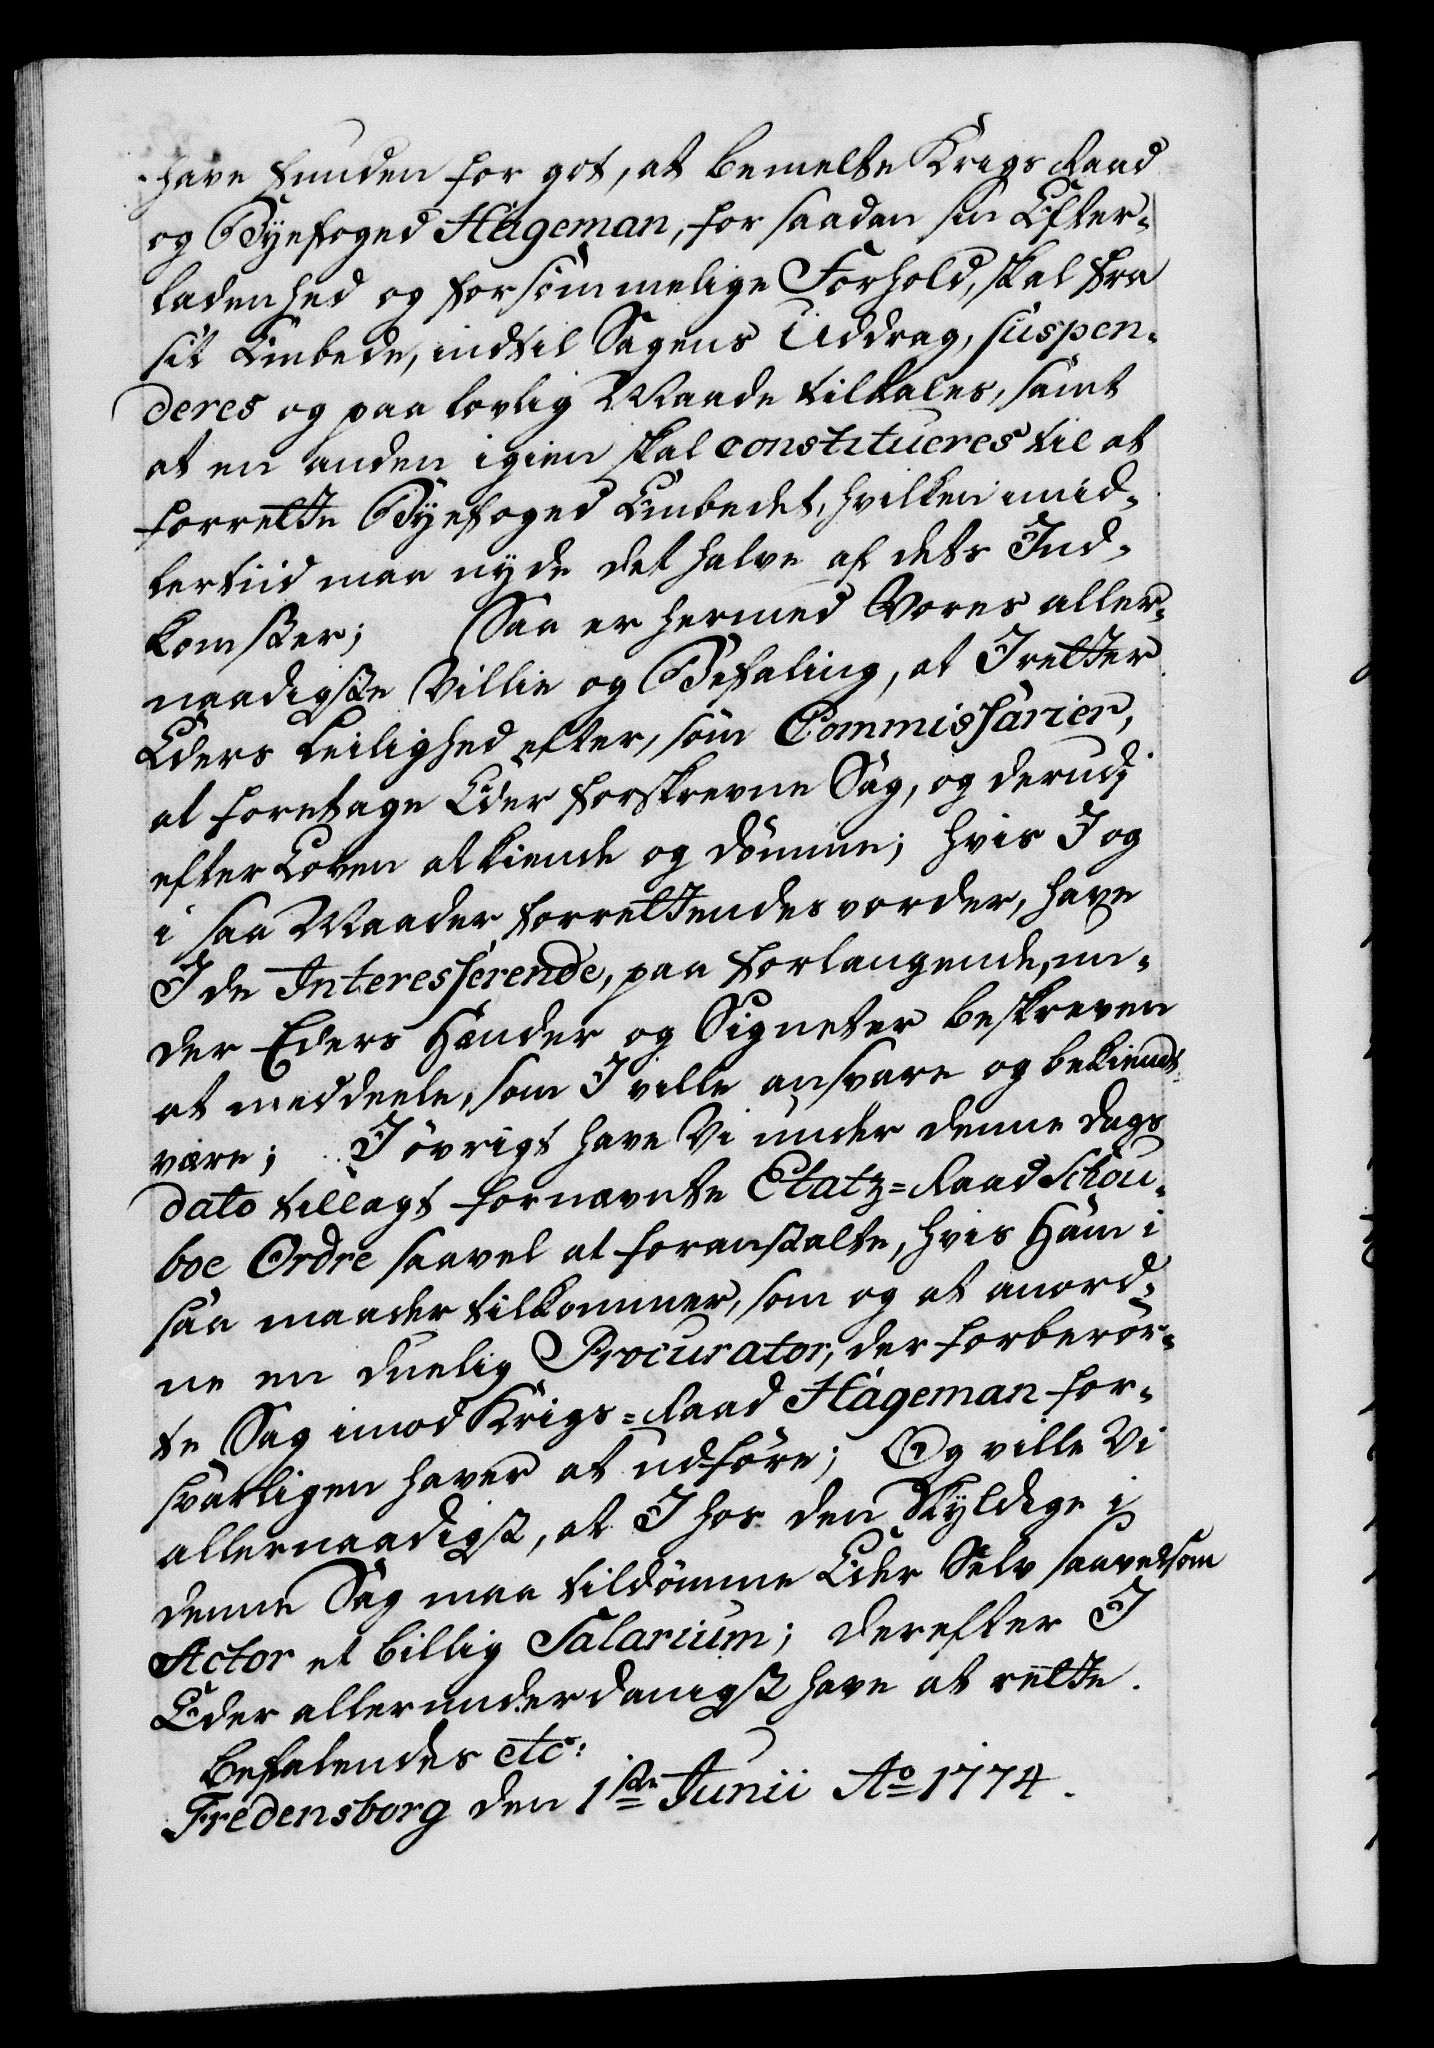 have funden for got, at bemelte Krigs Raad
og Byefoged Hageman, for saadan sin Efter-
ladenhed og forsömmelige Forhold, skal fra
sit Embede, indtil Sagens Uddrag, suspen-
deres og paa lovlig Maade tiltales, samt
at en anden igien skal constitueres til at
forrette Byefoged Embedet, hvilken imid-
lertiid maa nyde det halve af dets Ind-
komster; Saa er hermed Vores aller-
naadigste Villie og Befaling, at I retter
Eders Leilighed efter, som Commissarier,
at foretage Eder forskrevne Sag, og derudj
efter Loven at kiende og dömme; hvis I og
i saa Maader forrettendes vorder, have
I de Interesserende, paa forlangende, un-
der Eders Hænder og Signeter beskreven
at meddeele, som I ville ansvare og bekiendt
være; I övrigt have Vi under denne Dags
dato tillagt fornævnte Etatz=Raad Schou-
boe Ordre saavel at foranstalte, hvis Ham i
saa maader tilkommer, som og at anord-
ne en duelig Procurator, der forberör-
te Sag imod Krigs=Raad Hageman for-
svarligen haver at udföre; Og ville Vi
allernaadigst, at I hos den Skyldige i
denne Sag maa tildömme Eder Selv saavelsom
Actor et billig Salarium; derefter I
Eder allerunderdanigst have at rette.
Befalendes etc:
Fredensborg den 1ste Junii Ao 1774.